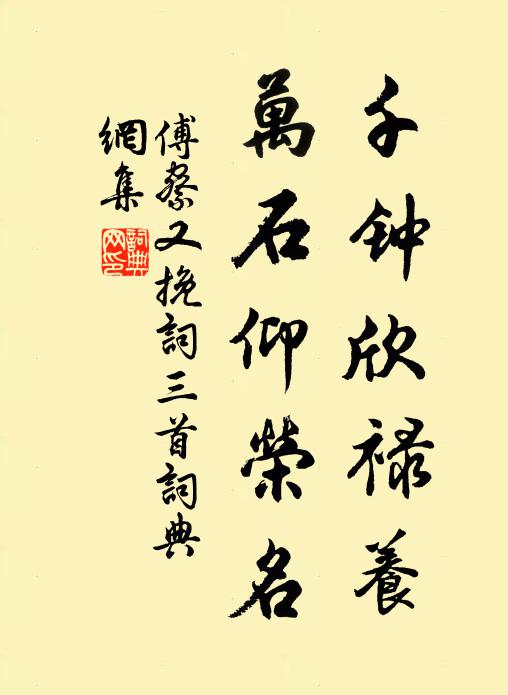 千钟欣禄養
萬石仰榮名
傅察又挽詞三首詞典
網集
詞典網印